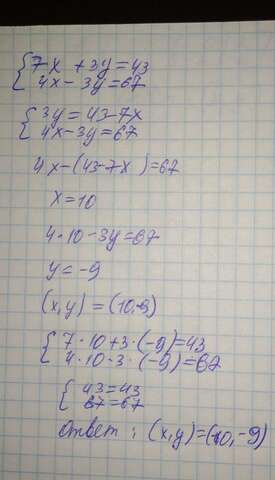 7x + 3y = 43
4x - 3y = 67
3y = 43-7x
4x-3y = 67
4x-(43-7x)=67
x=10
4·10-3y=67
y=-9
(x,y) = (10,-9)
7·10+3·(-9)=43
4·10-3·(-9)=67
43=43
67=67
Ответ: (x,y)=(10,-9)